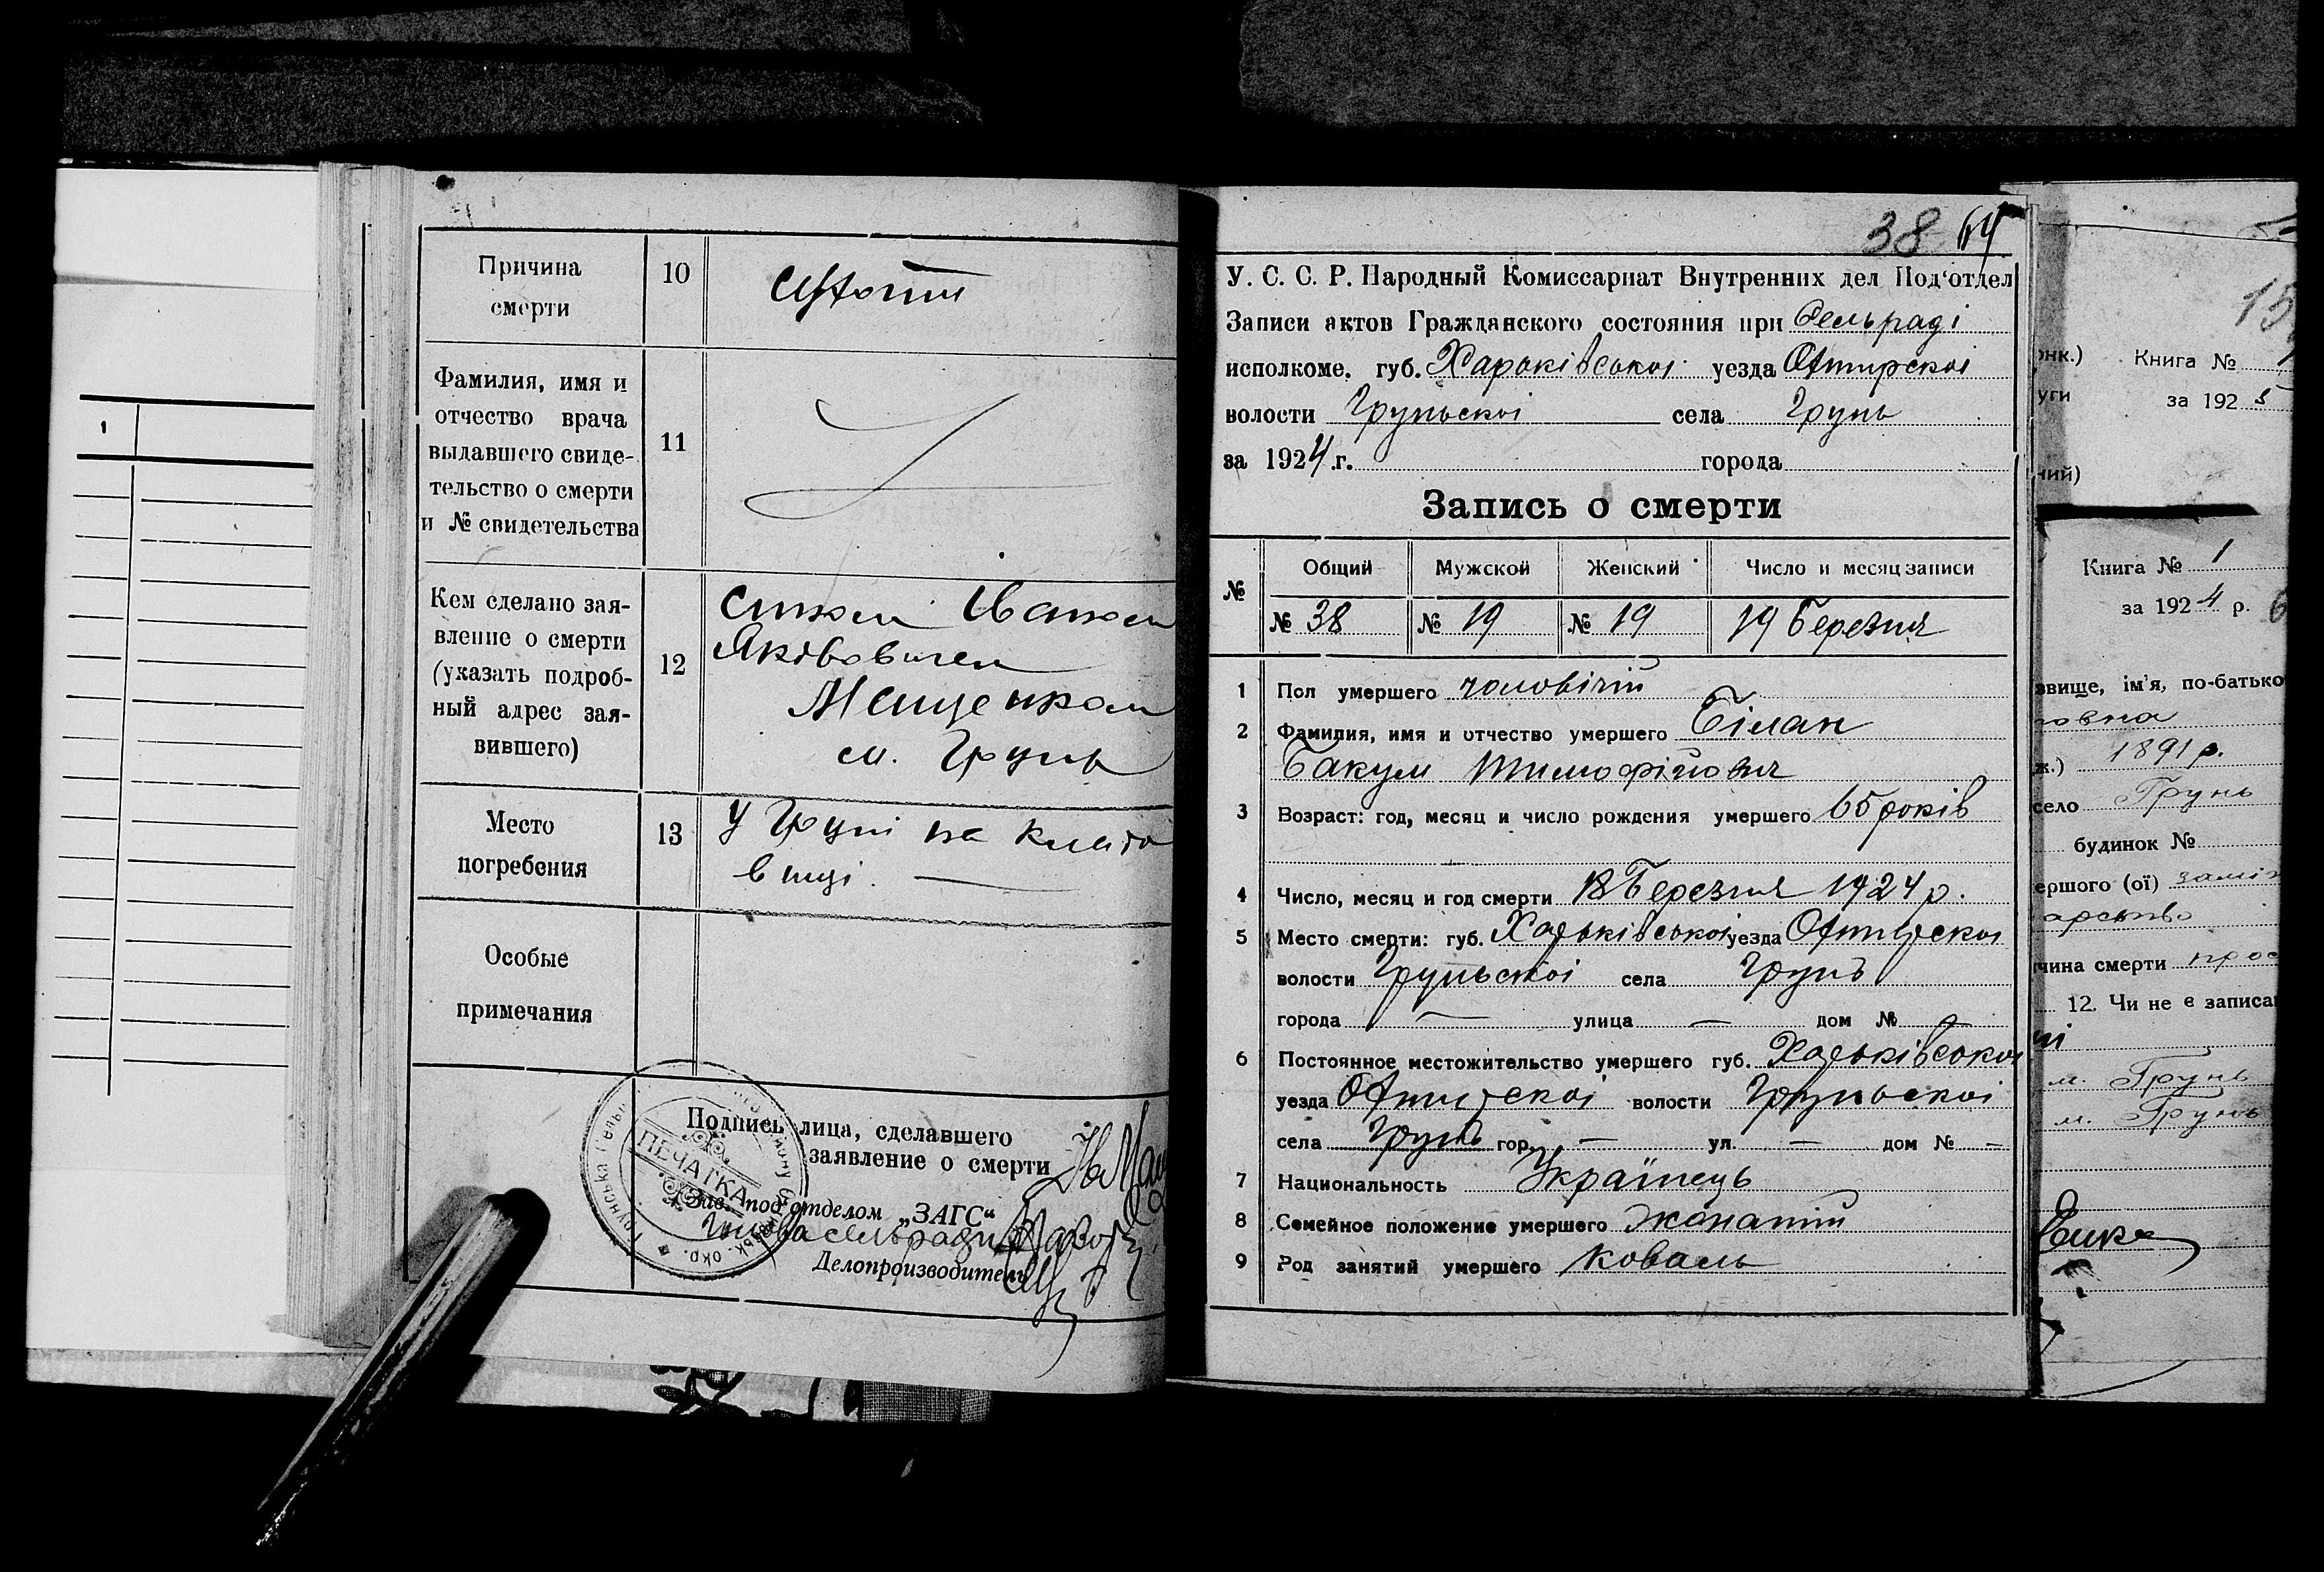 1
Причина
смерти
10
Фамилия, имя и
отчество врача
выдавшего свиде-
тельство о смерти
и № свидетельства
11
Кем сделано зая-
вление о смерти
(указать подроб-
ный адрес зая-
вившего)
12
Іваном
Яківовичем
Мащенком
м. Грунь
Место
погребения
13
у Груні на кладо
вищі.
Особые
примечания
Подпись лица, сделавшего
заявление о смерти
Зав. под‘отделом „ЗАГС“
Голова сельради
Делопроизводитель
ПЕЧАТКА
38 64
У. С. С. Р. Народный Комиссариат Внутренних дел Под‘отдел
Записи актов Гражданского состояния при Сельраді
исполкоме. губ. Харьківськоі уезда Охтирскоі
волости Груньскоі села Грунь
за 1924 г. города
Запись о смерти
№ Общий Мужской Женский Число и месяц записи
№ 38 № 19 № 19 19 Березня
1 Пол умершего чоловічій
2 Фамилия, имя и отчество умершего Білан
Бакум Тимофійович
3 Возраст: год, месяц и число рождения умершего 65 років
4 Число, месяц и год смерти 18 Березня 1924 р.
5 Место смерти: губ. Харьківськоі уезда Охтирскоі
волости Груньскоі села Грунь
города — улица — дом № —
6 Постоянное местожительство умершего губ. Харьківськоі
уезда Охтирскоі волости Груньскоі
села Грунь гор. — ул. — дом № —
7 Национальность Українець
8 Семейное положение умершего жонатій
9 Род занятий умершего коваль
15
онк.) Книга №
уги за 192 5
ний)
Книга № 1
за 1924 р. 6
звище, ім’я, по-батько
овна
ж.) 1891 р.
село Грунь
будинок №
ершого (ої) заміж
арство
чина смерти прос
12. Чи не є записа
м. Грунь
м. Грунь